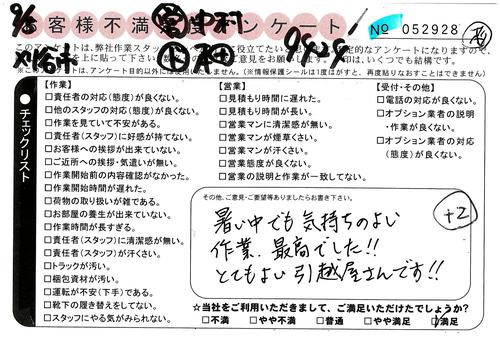 9/5 お客様不満足度アンケート ㊪中村 No 052928
刈谷市
9925
※このアンケートは、アンケート目的以外には使用いたしません。(※情報保護シールは1度がすと、再度貼りなおすことができません。)
チェックリスト
【作業】
□責任者の対応(態度)が良くない。
□他のスタッフの対応(態度)が良くない。
□作業を見ていて不安がある。
□責任者(スタッフ)に好感が持てない。
□お客様への挨拶が出来ていない。
□ご近所への挨拶・気遣いが無い。
□作業開始前の内容確認がなかった。
□作業開始時間が遅れた。
□荷物の取り扱いが雑である。
□お部屋の養生が出来ていない。
□作業時間が長すぎる。
□責任者(スタッフ)に清潔感が無い。
□責任者(スタッフ)が汗くさい。
□トラックが汚い。
□梱包資材が汚い。
□運転が不安(下手)である。
□靴下の履き替えをしてない。
□スタッフにやる気がみられない。
【営業】
□見積もり時間に遅れた。
□見積もり時間が長い。
□営業マンに清潔感が無い。
□営業マンが煙草くさい。
□営業マンが汗くさい。
□営業態度が良くない。
□営業の説明と作業が一致してない。
【受付・その他】
□電話の対応が良くない。
□オプション業者の説明
・作業が良くない。
□オプション業者の対応
(態度)が良くない。
その他、ご意見・ご要望等ありましたらお書き下さい。
暑い中でも気持ちのよい
作業、最高でした!!
とてもよい引越屋さんです!!
+2
☆当社をご利用いただきまして、ご満足いただけたでしょうか?
□不満 □やや不満 □普通 □やや満足 ☑満足